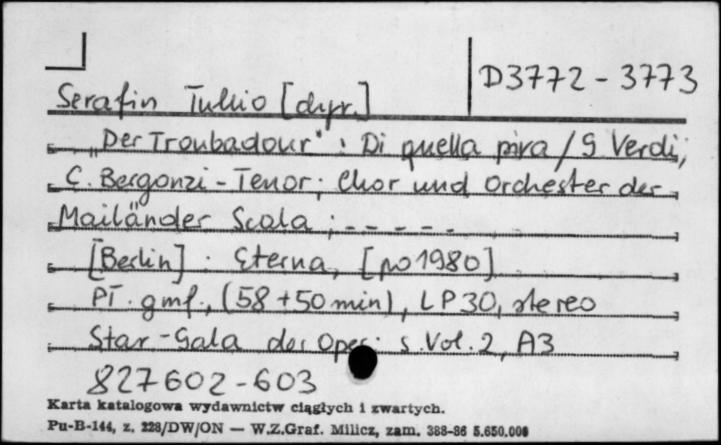 D3772 - 3773
Serafin Tullio [dyr.]
„Der Troubadour": Di quella pira / G Verdi,
C. Bergonzi - Tenor; Chor und Orchester der
Mailänder Scala ; - - - - -
[Berlin] : Eterna, [po 1980]
PŁ. gmf., (58 + 50 min), LP 30, stereo
Star-Gala der Oper: s. Vol. 2, A3
827602-603
Karta katalogowa wydawnictw ciągłych i zwartych.
Pu-B-144, z. 228/DW/ON — W.Z.Graf. Milicz, zam. 388-86 5.650.000